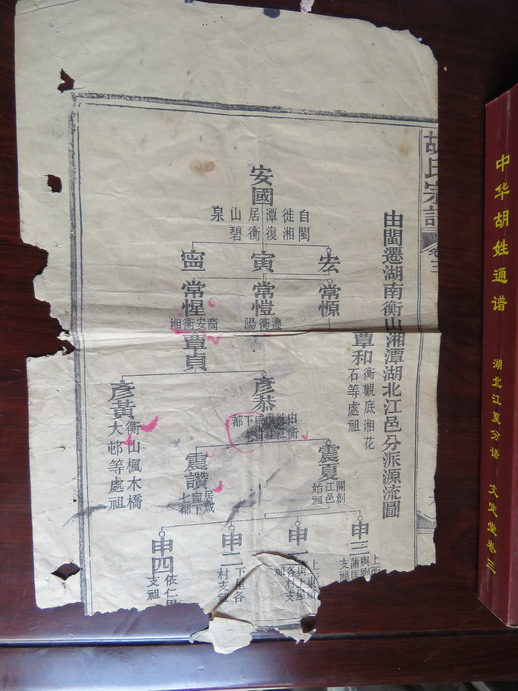 胡氏宗譜
卷三
由閩遷湖南衡山湘潭湖北江邑分派源流圖
安國
自閩
徙湘
潭復
居衡
山碧
泉
宏
寅
寍
常愿
常愷
遷衡
陽
常惺
裔安衡湘
覃和
衡觀底湘花
石等處祖
覃貞
彥恭
彥黃
衡山楓木橋
大邨等處祖
震夏
開創
江邑
始祖
震
七都
申三
申一
申二
下屋各
村支祖
申四
支祖
中华胡姓通谱
湖北江夏分谱
文定堂卷三